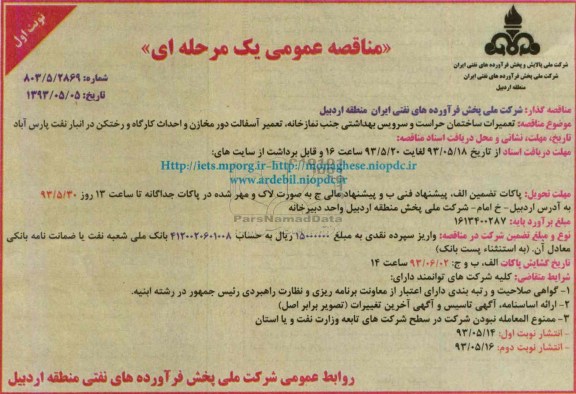 نوبت اول
شرکت ملی پالایش و پخش فرآورده های نفتی ایران
شرکت ملی پخش فرآورده های نفتی ایران
منطقه اردبیل
«مناقصه عمومی یک مرحله ای»
شماره: ۸۰۳/۵/۲۸۶۹
تاریخ: ۱۳۹۳/۰۵/۰۵
مناقصه گذار: شرکت ملی پخش فرآورده های نفتی ایران منطقه اردبیل
موضوع مناقصه: تعمیرات ساختمان حراست و سرویس بهداشتی جنب نمازخانه، تعمیر آسفالت دور مخازن و احداث کارگاه و رختکن در انبار نفت پارس آباد
تاریخ، مهلت، نشانی و محل دریافت اسناد مناقصه:
مهلت دریافت اسناد از تاریخ ۹۳/۰۵/۱۸ لغایت ۹۳/۵/۲۰ ساعت ۱۶ و قابل برداشت از سایت های:
Http://iets.mporg.ir-http://monaghese.niopdc.ir
www.ardebil.niopdc.ir
مهلت تحویل: پاکات تضمین الف، پیشنهاد فنی ب و پیشنهاد مالی ج به صورت لاک و مهر شده در پاکات جداگانه تا ساعت ۱۳ روز ۹۳/۵/۳۰
به آدرس اردبیل- خ امام- شرکت ملی پخش منطقه اردبیل واحد دبیرخانه
مبلغ برآورد پایه: ۱۶۱۳۴۰۰۲۸۷
نوع و مبلغ تضمین شرکت در مناقصه: واریز سپرده نقدی به مبلغ ۱۵۰۰۰۰۰۰ ریال به حساب ۴۱۲۰۰۲۰۶۰۱۰۰۸ بانک ملی شعبه نفت یا ضمانت نامه بانکی
معادل آن. (به استثناء پست بانک)
تاریخ گشایش پاکات الف، ب و ج: ۹۳/۰۶/۰۲ ساعت ۱۴
شرایط متقاضی: کلیه شرکت های توانمند دارای:
۱- گواهی صلاحیت و رتبه بندی دارای اعتبار از معاونت برنامه ریزی و نظارت راهبردی رئیس جمهور در رشته ابنیه.
۲- ارائه اساسنامه، آگهی تاسیس و آگهی آخرین تغییرات (تصویر برابر اصل)
۳- ممنوع المعامله نبودن شرکت در سطح شرکت های تابعه وزارت نفت و یا استان
- انتشار نوبت اول: ۹۳/۰۵/۱۴
- انتشار نوبت دوم: ۹۳/۰۵/۱۶
روابط عمومی شرکت ملی پخش فرآورده های نفتی منطقه اردبیل
ParsNamadData